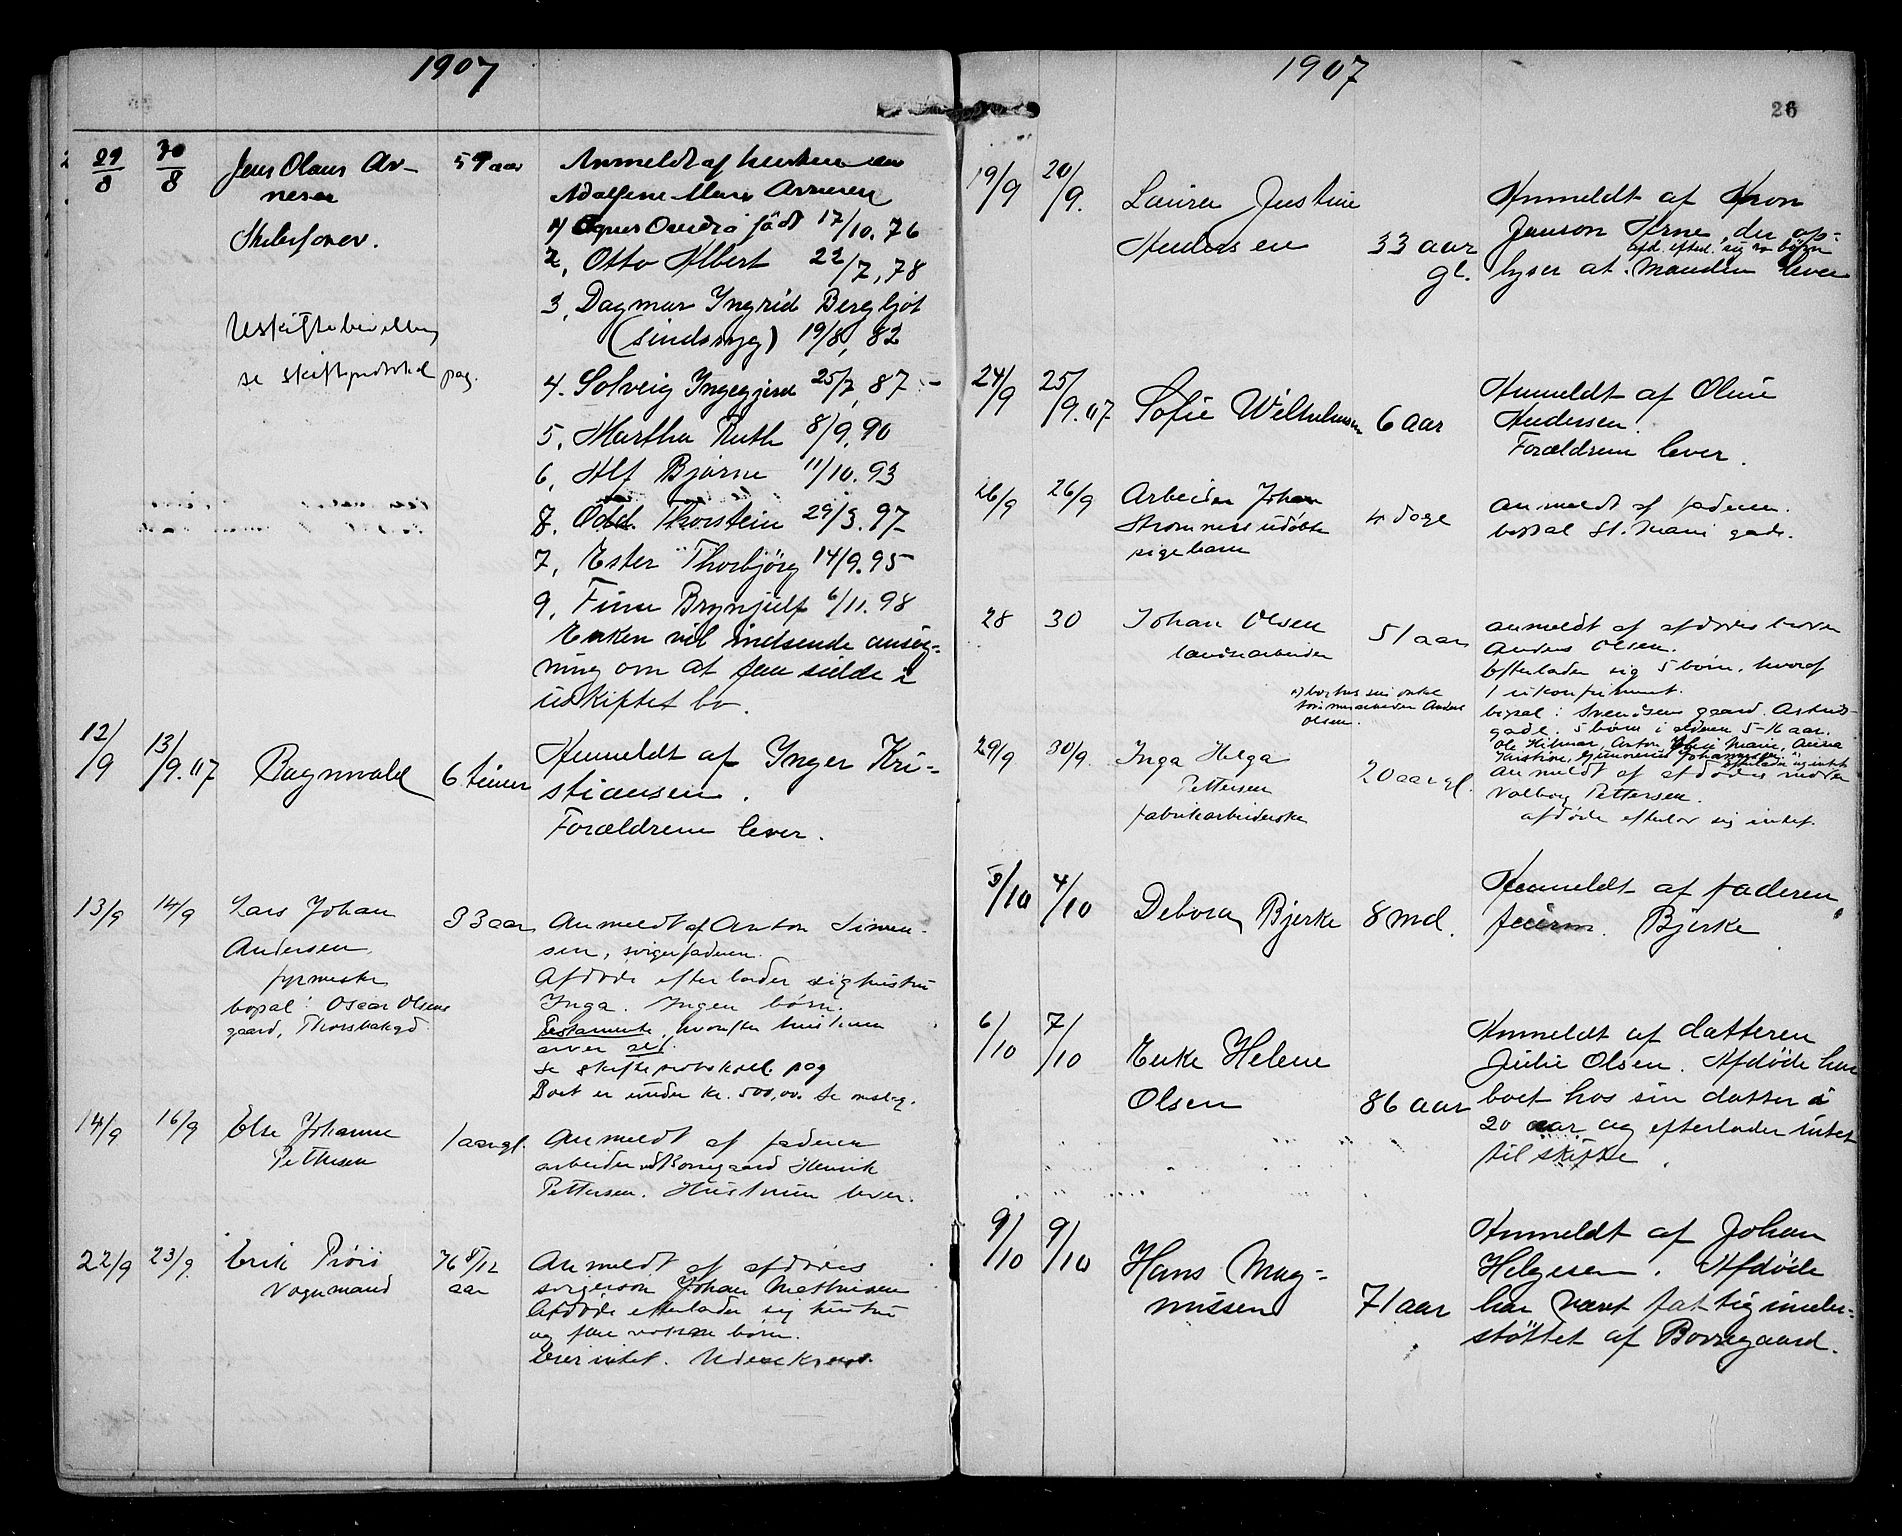 1907
29/8 30/8 Jens Olaus Ar-
nesen
59 aar
Anmeldt af
Adolfine Marie Arnesen
1) Agnes Ovedia født 17/10. 76
2, Otto Albert 22/7, 78
3, Dagmar Ingrid Bergljot
(sindssyg) 19/8, 82
Uskiftebevilling
se skifteprotokol pag.
4. Solveig Ingegjerd 25/7, 87
5, Martha Ruth 8/9. 90
6, Alf Bjarne 11/10. 93
8. Odd Thorstein 29/3. 97
7, Ester Thorbjørg 14/9. 95
9, Finn Brynjulf 6/11. 98
Enken vil indsende ansøg-
ning om at faa sidde i
uskiftet bo.
12/9 13/9. 07 Ragnvald 6 timer
Anmeldt af Inger Kri-
stiansen.
Forældrene lever.
13/9 14/9 Lars Johan
Andersen
fyrmester
bopæl: Oscar Olsens
gaard, Thorsbækgd.
33 aar
Anmeldt af Anton Simen-
sen, svigerfaderen.
Afdøde efterlader sig hustru
Inga. Ingen børn.
Testamente, hvorefter hustruen
arver alt.
Se skifteprotokol pag
Boet er under kr. 500,00.
14/9 16/9 Else Johanne
Pettersen
1 aar gl.
Anmeldt af faderen
arbeider ved Borregaard Henrik
Pettersen. Hustruen lever.
22/9 23/9. Erik
Vognmand
76 8/12
aar
Anmeldt af afdødes
svigersøn Johan Mathisen
Afdøde efterlader sig hustru
og fem voksne børn.
Eier intet.
1907
26
19/9 20/9. Laura Justine
Andersen
33 aar
gl.
Anmeldt af
Janson Arne, der op-
afd. efterl. sig børn
lyser at Manden lever
24/9 25/9. 07 Sofie Wilhelmsen 6 aar
Anmeldt af Oline
Andersen.
Forældrene lever.
26/9 26/9 Arbeider Johan
Strømnes udøbte
pigebarn
4 dage
Anmeldt af faderen.
bopæl St. Marie gade.
28 30 Johan Olsen
landarbeider
51 aar
Anmeldt af afdødes
Anders Olsen.
Efterlader sig 5 børn, hvoraf
1 ukonfirmeret.
x) bor hos sin onkel
tømmerarbeider Anders
Olsen.
bopæl: Svendsens gaard.
gade. 5 børn i alderen 5-16 aar.
Ole Hilmar, Anton, Marie, Anna
29/9 30/9. Inga Helga
Pettersen
fabrikarbeiderske
20 aar gl.
Anmeldt af afdødes moder
Valborg Pettersen.
afdøde efterlod sig intet.
3/10 4/10 Debora Bjerke 8 md.
Anmeldt af faderen
Bjerke
6/10 7/10 Enke Helene
Olsen
86 aar
Anmeldt af datteren
Julie Olsen. Afdøde har
boet hos sin datter i
20 aar og efterlader intet
til skifte.
9/10 9/10 Hans Mag-
nussen
71 aar
Anmeldt af Johan
Helgesen. Afdøde
har været fattigunder-
støttet af Borregaard.